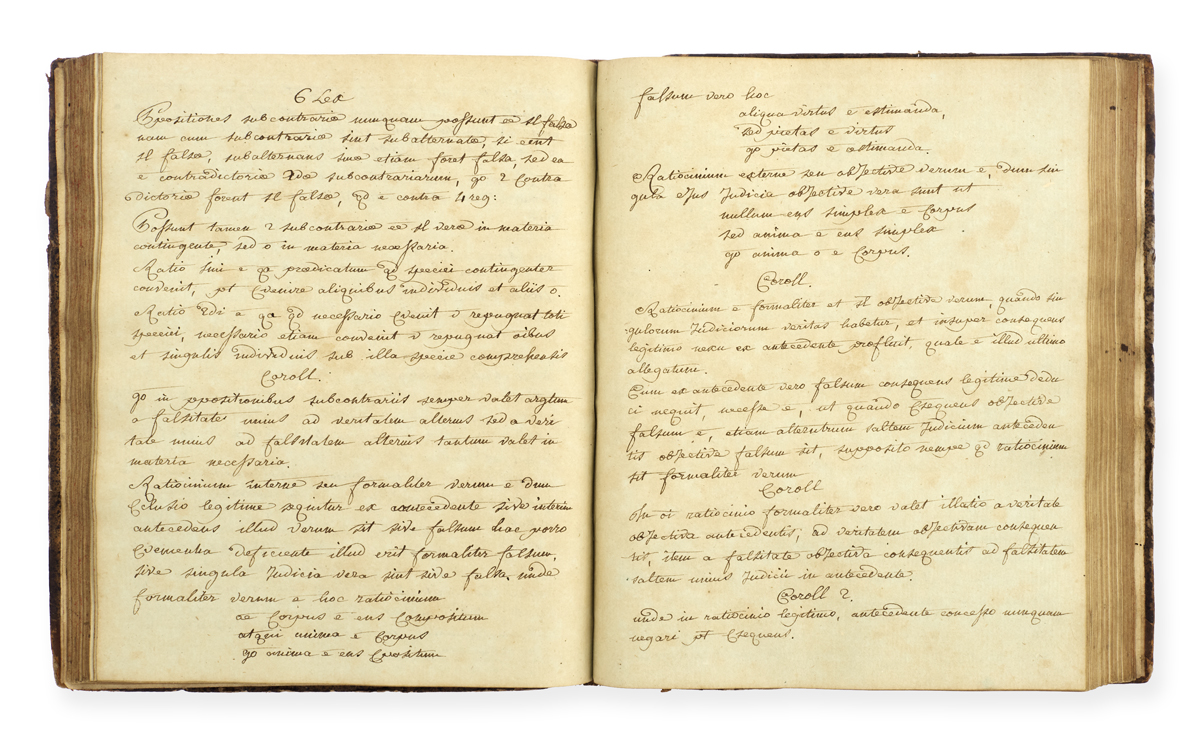 6 Lex
Propositiones subcontrariæ nunquam possunt eē sl falsæ
nam cum subcontrariæ sint subalternatæ, si eēnt
sl falsæ, subalternans suæ etiam foret falsa, sed ea
ē contradictoria subcontrariarum, go 2 contra
dictoriæ forent sl falsæ, qd ē contra 4 reg:
Possunt tamen 2 subcontrariæ eē sl veræ in materia
contingente, sed o in materia necessaria.
Ratio ē qa prædicatum qd speciei contingenter
convenit, pt Cvenire aliquibus individuis et aliis o.
Ratio 2di ē qa qd necessario Cvenit v repugnat toti
speciei, necessario etiam convenit v repugnat oibus
et singulis individuis sub illa specie comprehensis
Coroll.
go in ppositionibus subcontrariis semper valet argtum
a falsitate unius ad veritatem alterius sed a veri
tate unius ad falsitatem alterius tantum valet in
materia necessaria.
Ratiocinium interne seu formaliter verum ē dum
Cclusio legitime sequitur ex antecedente sive interim
antecedens illud verum sit sive falsum hac porro
deficiente illud erit formaliter falsum,
sive singula Judicia vera sint sive falsa, unde
formaliter verum ē hoc ratiocinium
oē Corpus ē ens Compositum
atqui anima ē Corpus
go anima ē ens Cpositum
falsum vero hoc
aliqua virtus ē estimanda,
sed pietas ē virtus
go pietas ē æstimanda.
Ratiocinium externe seu objective verum ē, dum sin
gula ejus Judicia objective vera sunt ut
nullum ens simplex ē Corpus
sed anima ē ens simplex
go anima o ē Corpus.
Coroll.
Ratiocinium ē formaliter et sl objective verum, quando sin
gulorum Judiciorum veritas habetur, et insuper consequens
legitimo nexu ex antecedente profluit, quale ē illud ultimo
allegatum.
Cum ex antecedente vero falsum consequens legitime dedu
ci nequit, necesse ē, ut quando Csequens objective
falsum ē, etiam alterutrum saltem Judicium anteceden
tis objective falsum sit, supposito nempe qd ratiocinium
sit formaliter verum
Coroll
In oi ratiocinio formaliter vero valet illatio a veritate
objectiva antecedentis, ad veritatem objectivam consequen
tis, item a falsitate objectiva consequentis ad falsitatem
saltem unius Judicii in antecedente.
Coroll 2.
unde in ratiocinio legitimo, antecedente concesso nunquam
negari pt Csequens.